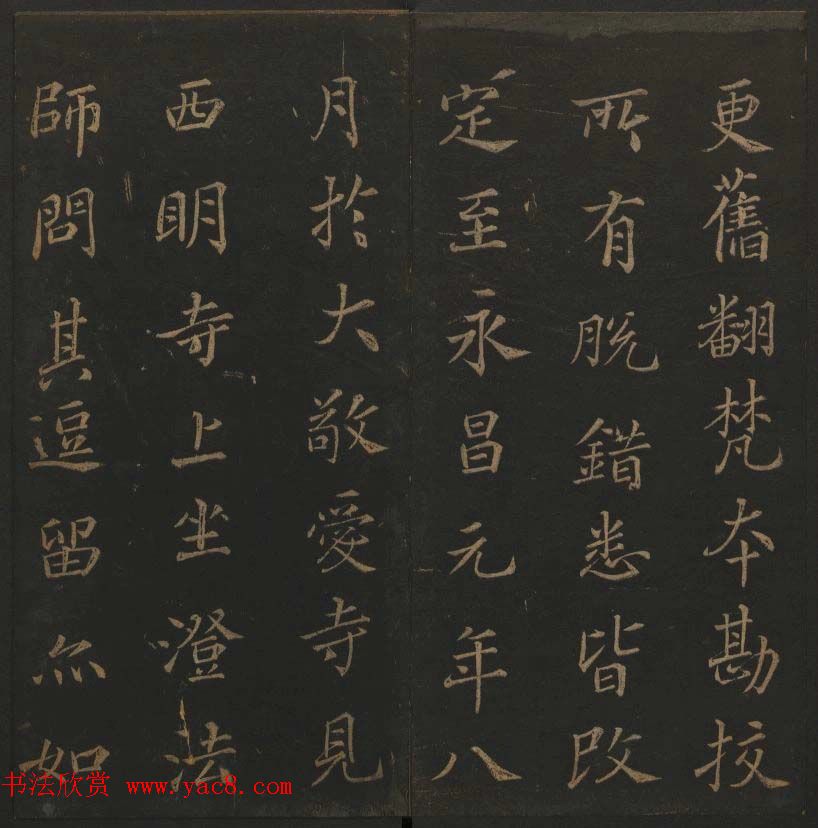 更舊翻梵本勘挍
所有脫錯悉皆改
定至永昌元年八
月於大敬愛寺見
西明寺上坐澄法
師問其逗留亦如
书法欣赏 www.yac8.com